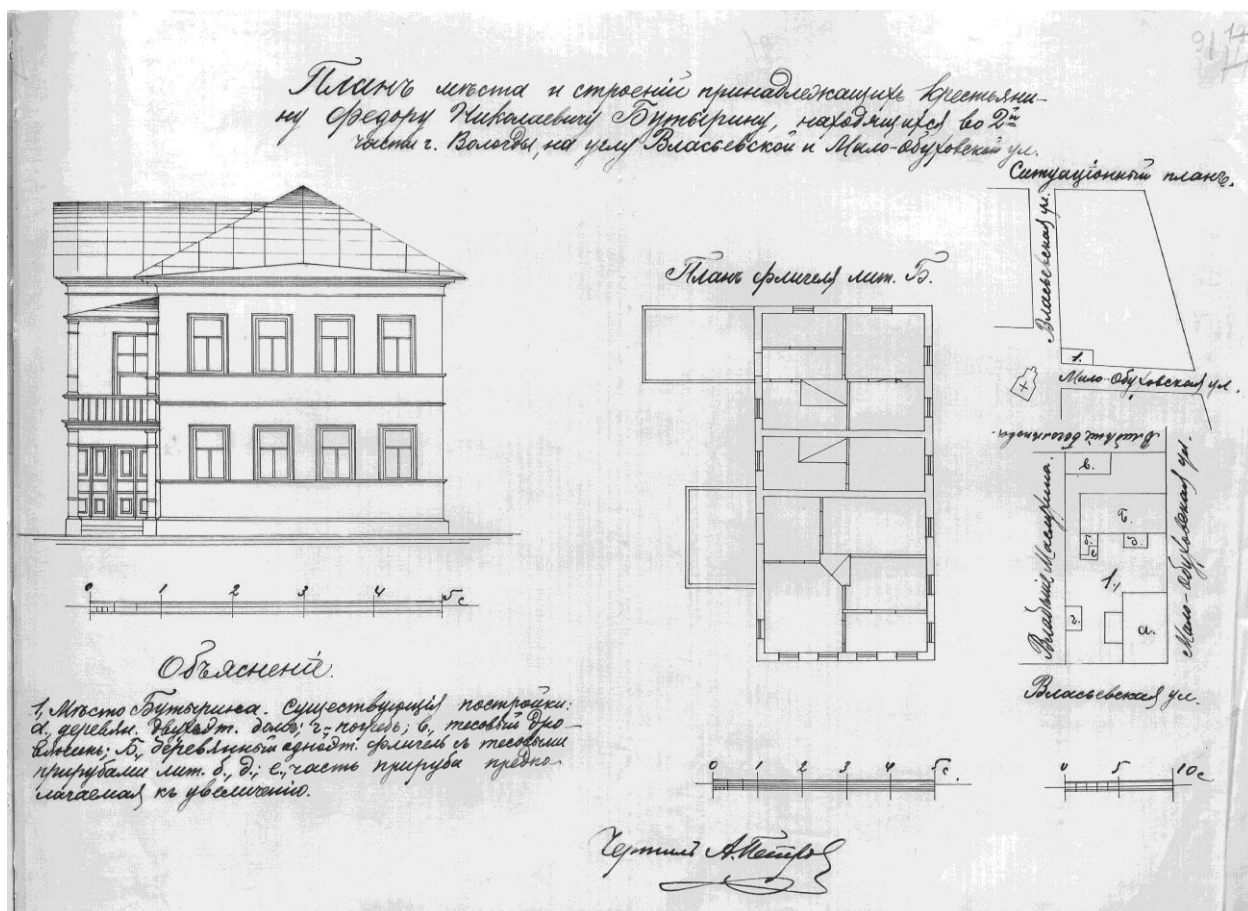 Планъ мѣста и строеній принадлежащихъ крестьяни-
ну Федору Николаевичу Бутырину, находящихся во 2й
части г. Вологды, на углу Власьевской и Мало-Обуховской ул.
Ситуаціонный планъ.
Власьевская ул.
1.
Мало-Обуховская ул.
Планъ флигеля лит. Б.
Владѣніе
в.
Б.
д.
е
1,
г.
а.
Владѣніе Масурина.
Мало-Обуховская ул.
Власьевская ул.
0 1 2 3 4 5с
Объясненіе.
1, Мѣсто Бутырина. Существующія постройки:
а, деревян. двухэт. домъ; г,-погребъ; в, тесовый дро-
вяникъ; Б, деревянный одноэт. флигель съ тесовыми
прирубами лит. б, д,; е, часть прируба предпо-
лагаемая къ увеличенію.
0 1 2 3 4 5с.
0 5 10с
Чертилъ А. Петров